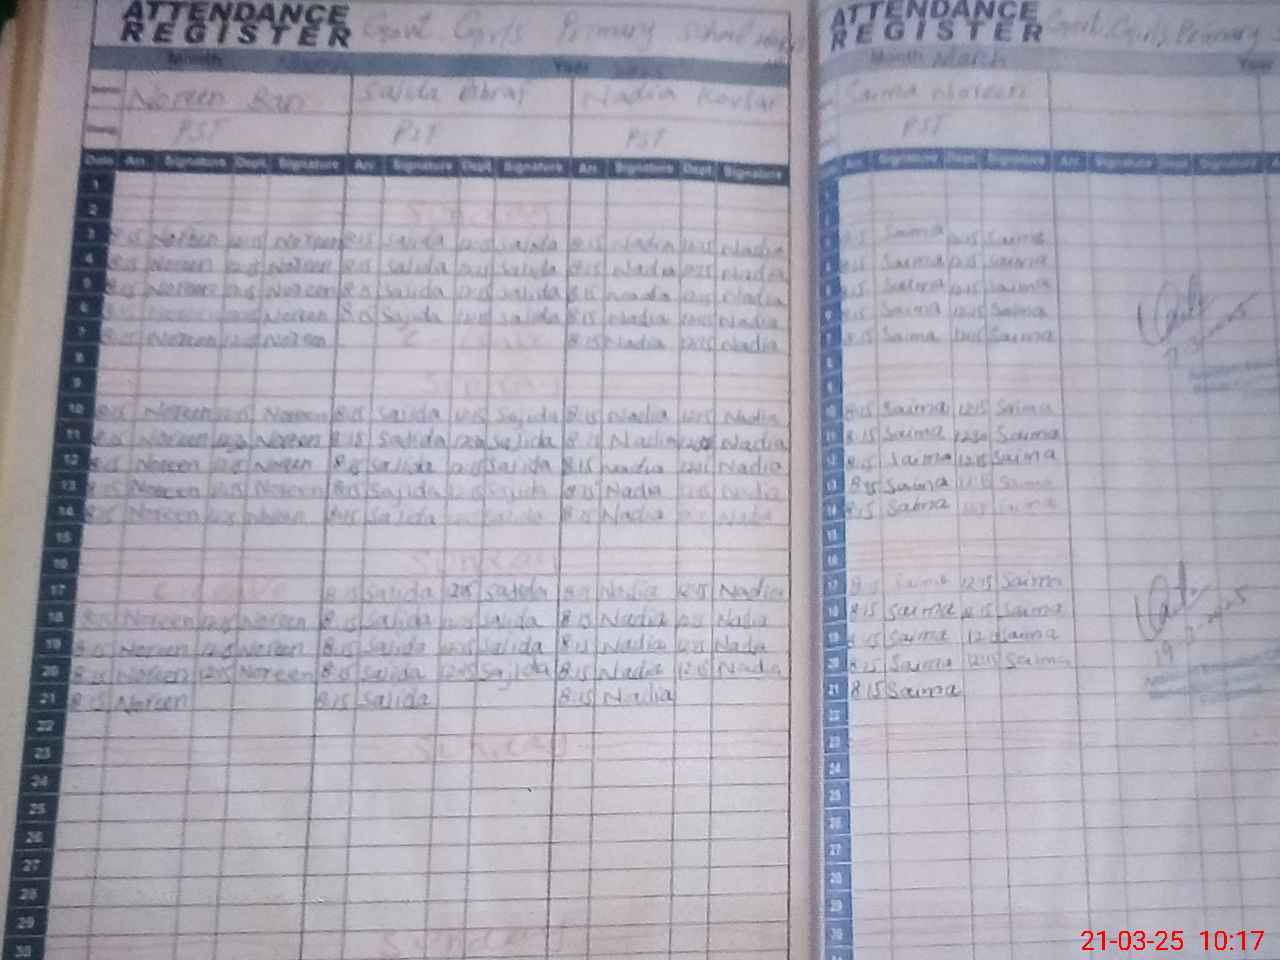 ATTENDANCE REGISTER Govt. Girls Primary School
Month Year
Noreen Sajida Nadia Kousar
PST PST PST
Date Arr. Signature Dept. Signature Arr. Signature Dept. Signature Arr. Signature Dept. Signature
1
2 Sunday
3 8:15 Noreen 12:15 Noreen 8:15 Sajida 12:15 Sajida 8:15 Nadia 12:15 Nadia
4 8:15 Noreen 12:15 Noreen 8:15 Sajida 12:15 Sajida 8:15 Nadia 12:15 Nadia
5 8:15 Noreen 12:15 Noreen 8:15 Sajida 12:15 Sajida 8:15 Nadia 12:15 Nadia
6 8:15 Noreen 12:15 Noreen 8:15 Sajida 12:15 Sajida 8:15 Nadia 12:15 Nadia
7 8:15 Noreen 12:15 Noreen 8:15 Nadia 12:15 Nadia
8
9 Sunday
10 8:15 Noreen 12:15 Noreen 8:15 Sajida 12:15 Sajida 8:15 Nadia 12:15 Nadia
11 8:15 Noreen Noreen 8:15 Sajida Sajida 8:15 Nadia Nadia
12 8:15 Noreen 12:15 Noreen 8:15 Sajida 12:15 Sajida 8:15 Nadia 12:15 Nadia
13 8:15 Noreen 12:15 Noreen 8:15 Sajida 12:15 Sajida 8:15 Nadia 12:15 Nadia
14 8:15 Noreen 12:15 Noreen 8:15 Sajida 12:15 Sajida 8:15 Nadia 12:15 Nadia
15
16 Sunday
17 8:15 Sajida 12:15 Sajida 8:15 Nadia 12:15 Nadia
18 8:15 Noreen 12:15 Noreen 8:15 Sajida 12:15 Sajida 8:15 Nadia 12:15 Nadia
19 8:15 Noreen 12:15 Noreen 8:15 Sajida 12:15 Sajida 8:15 Nadia 12:15 Nadia
20 8:15 Noreen 12:15 Noreen 8:15 Sajida 12:15 Sajida 8:15 Nadia 12:15 Nadia
21 8:15 Noreen 8:15 Sajida 8:15 Nadia
22
23 Sunday
24
25
26
27
28
29
30 Sunday
ATTENDANCE REGISTER Govt. Girls Primary
Month March Year
Saima Noreen
PST
Arr. Signature Dept. Signature Arr. Signature Dept. Signature
1
2
3 8:15 Saima 12:15 Saima
4 8:15 Saima 12:15 Saima
5 8:15 Saima 12:15 Saima
6 8:15 Saima 12:15 Saima
7 8:15 Saima 12:15 Saima
8
9
10 8:15 Saima 12:15 Saima
11 8:15 Saima 12:30 Saima
12 8:15 Saima 12:15 Saima
13 8:15 Saima 12:15 Saima
14 8:15 Saima 12:15 Saima
15
16
17 8:15 Saima 12:15 Saima
18 8:15 Saima 12:15 Saima
19 8:15 Saima Saima
20 8:15 Saima 12:15 Saima
21 8:15 Saima
22
23
24
25
26
27
28
29
30
21-03-25 10:17